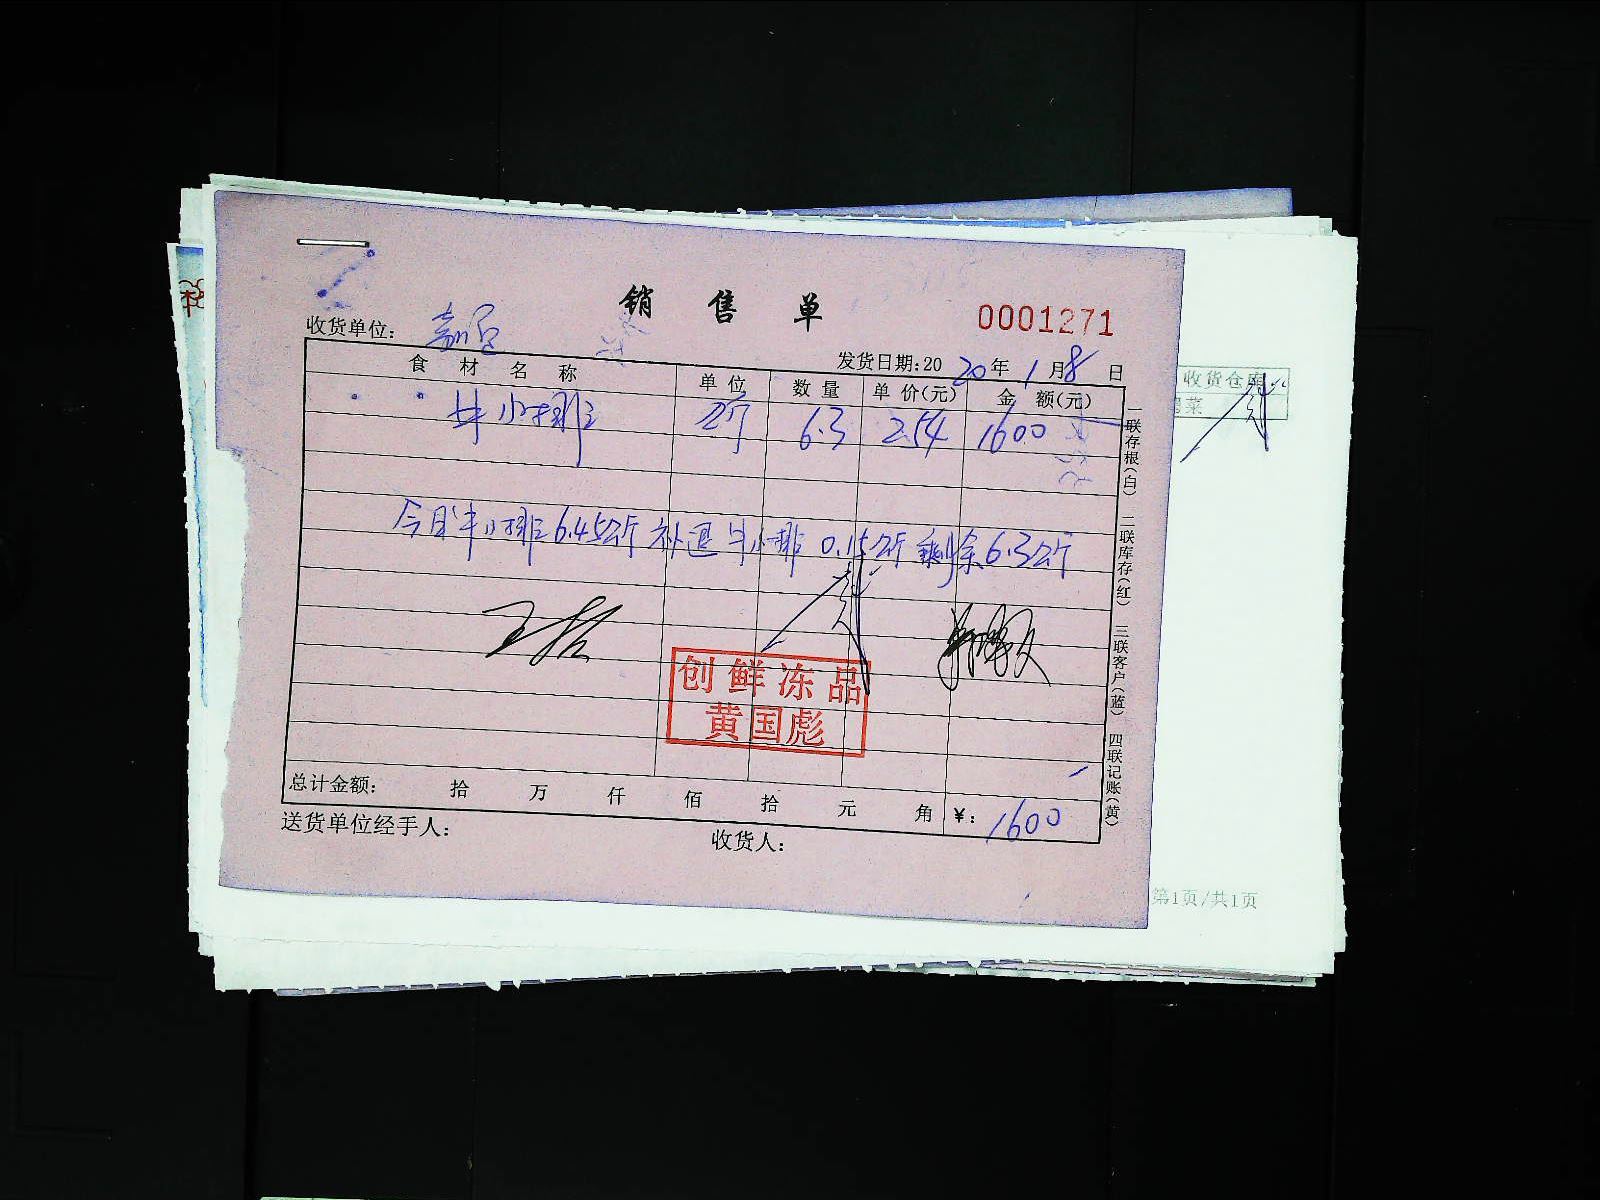 销售单
0001271
收货单位：
发货日期:2020年1月8日
食材名称 单位 数量 单价(元) 金额(元)
牛小排 公斤 6.3 254 1600
今日牛小排6.45公斤 补退牛小排0.15公斤 剩余6.3公斤
创鲜冻品
黄国彪
总计金额： 拾 万 仟 佰 拾 元 角 ¥：1600
送货单位经手人： 收货人：
一联存根(白) 二联库存(红) 三联客户(蓝) 四联记账(黄)
收货仓库
菜
第1页/共1页